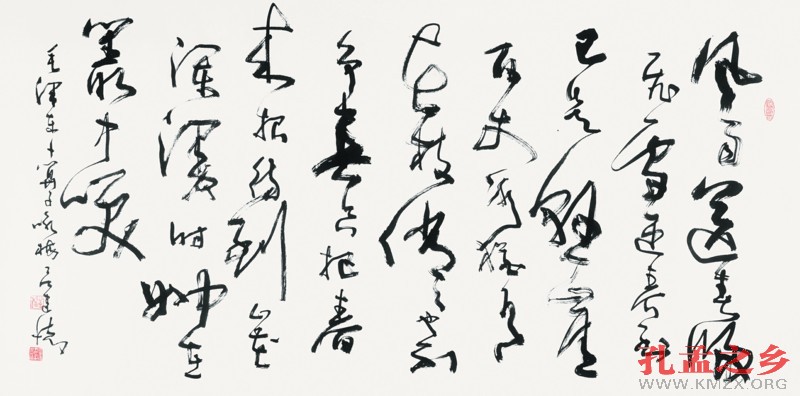 风雨送春归
飞雪迎春到
已是悬崖
百丈冰犹有
花枝俏俏也不
争春只把春
来报待到山花
烂漫时她在
丛中笑
毛泽东卜算子咏梅
孔孟之乡
WWW.KMZX.ORG